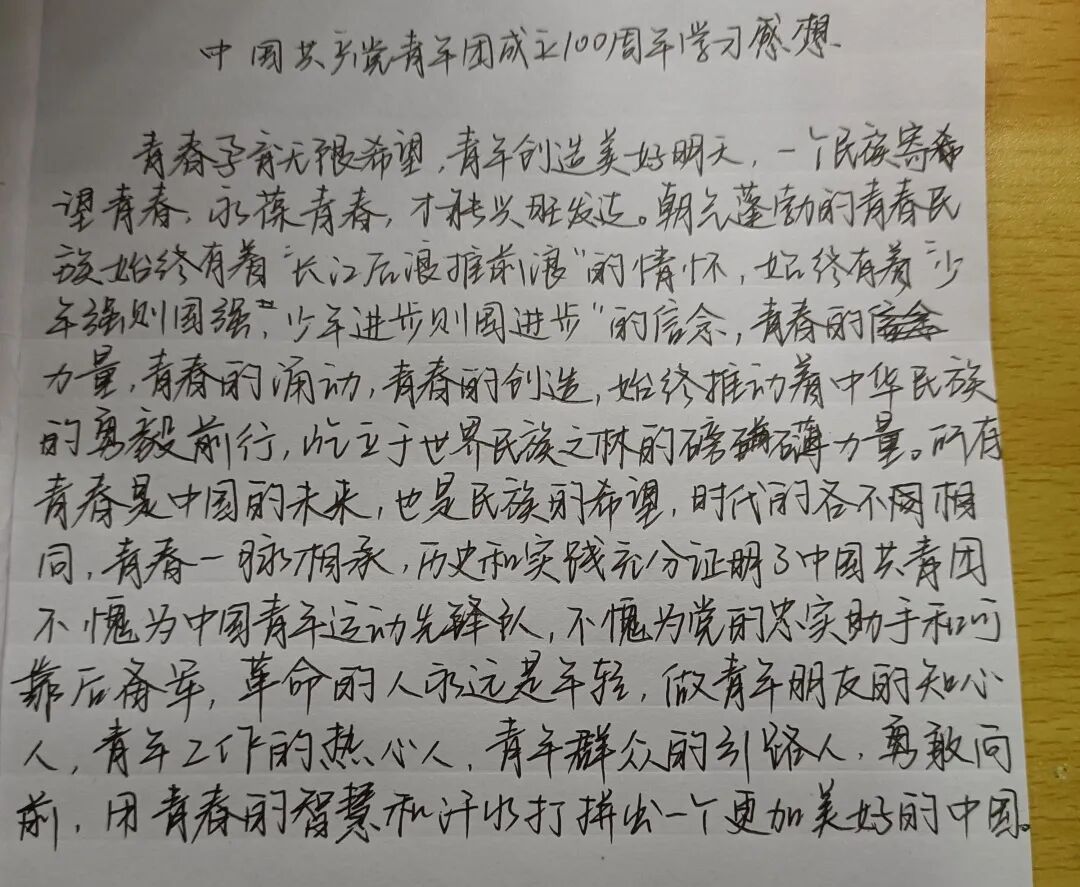 中国共产党青年团成立100周年学习感想
青春孕育无限希望，青年创造美好明天，一个民族寄希
望青春，永葆青春，才能兴旺发达。朝气蓬勃的青春民
族始终有着“长江后浪推前浪”的情怀，始终有着“少
年强则国强”，“少年进步则国进步”的信念，青春的
力量，青春的涌动，青春的创造，始终推动着中华民族
的勇毅前行，屹立于世界民族之林的磅礴力量。所有
青春是中国的未来，也是民族的希望，时代的各不相
同，青春一脉相承，历史和实践充分证明了中国共青团
不愧为中国青年运动先锋队，不愧为党的忠实助手和可
靠后备军，革命的人永远是年轻，做青年朋友的知心
人，青年工作的热心人，青年群众的引路人，勇敢向
前，用青春的智慧和汗水打拼出一个更加美好的中国。